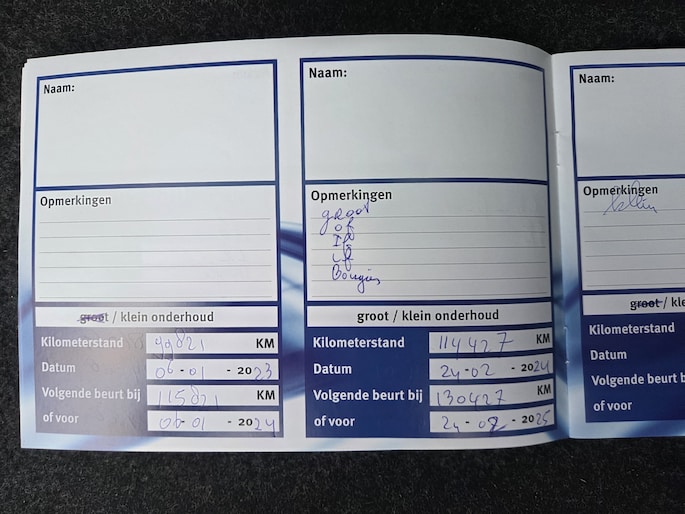 Naam:
Opmerkingen
groot / klein onderhoud
Kilometerstand 99821 KM
Datum 06-01-2023
Volgende beurt bij 115821 KM
of voor 06-01-2024
Naam:
Opmerkingen
groot
of
If
if
Bougies
groot / klein onderhoud
Kilometerstand 114427 KM
Datum 24-02-2024
Volgende beurt bij 130427 KM
of voor 24-02-2025
Naam:
Opmerkingen
klein
groot / klein
Kilometerstand
Datum
Volgende beurt b
of voor